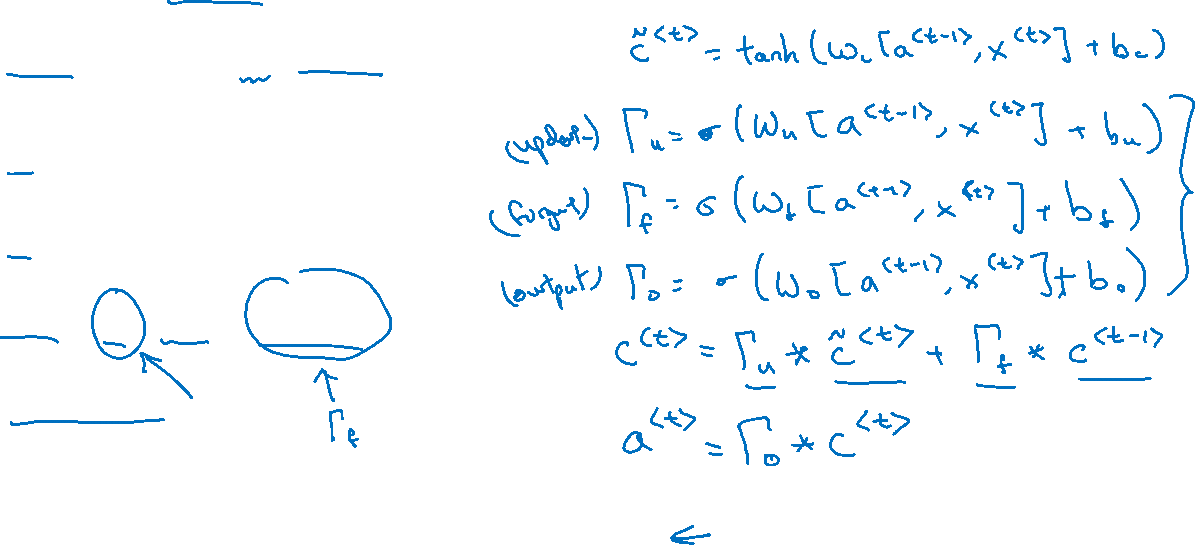 c̃^{<t>} = tanh(W_c[a^{<t-1>}, x^{<t>}] + b_c)
(update) Γ_u = σ(W_u[a^{<t-1>}, x^{<t>}] + b_u)
(forget) Γ_f = σ(W_f[a^{<t-1>}, x^{<t>}] + b_f)
(output) Γ_o = σ(W_o[a^{<t-1>}, x^{<t>}] + b_o)
c^{<t>} = Γ_u * c̃^{<t>} + Γ_f * c^{<t-1>}
Γ_f
a^{<t>} = Γ_o * c^{<t>}